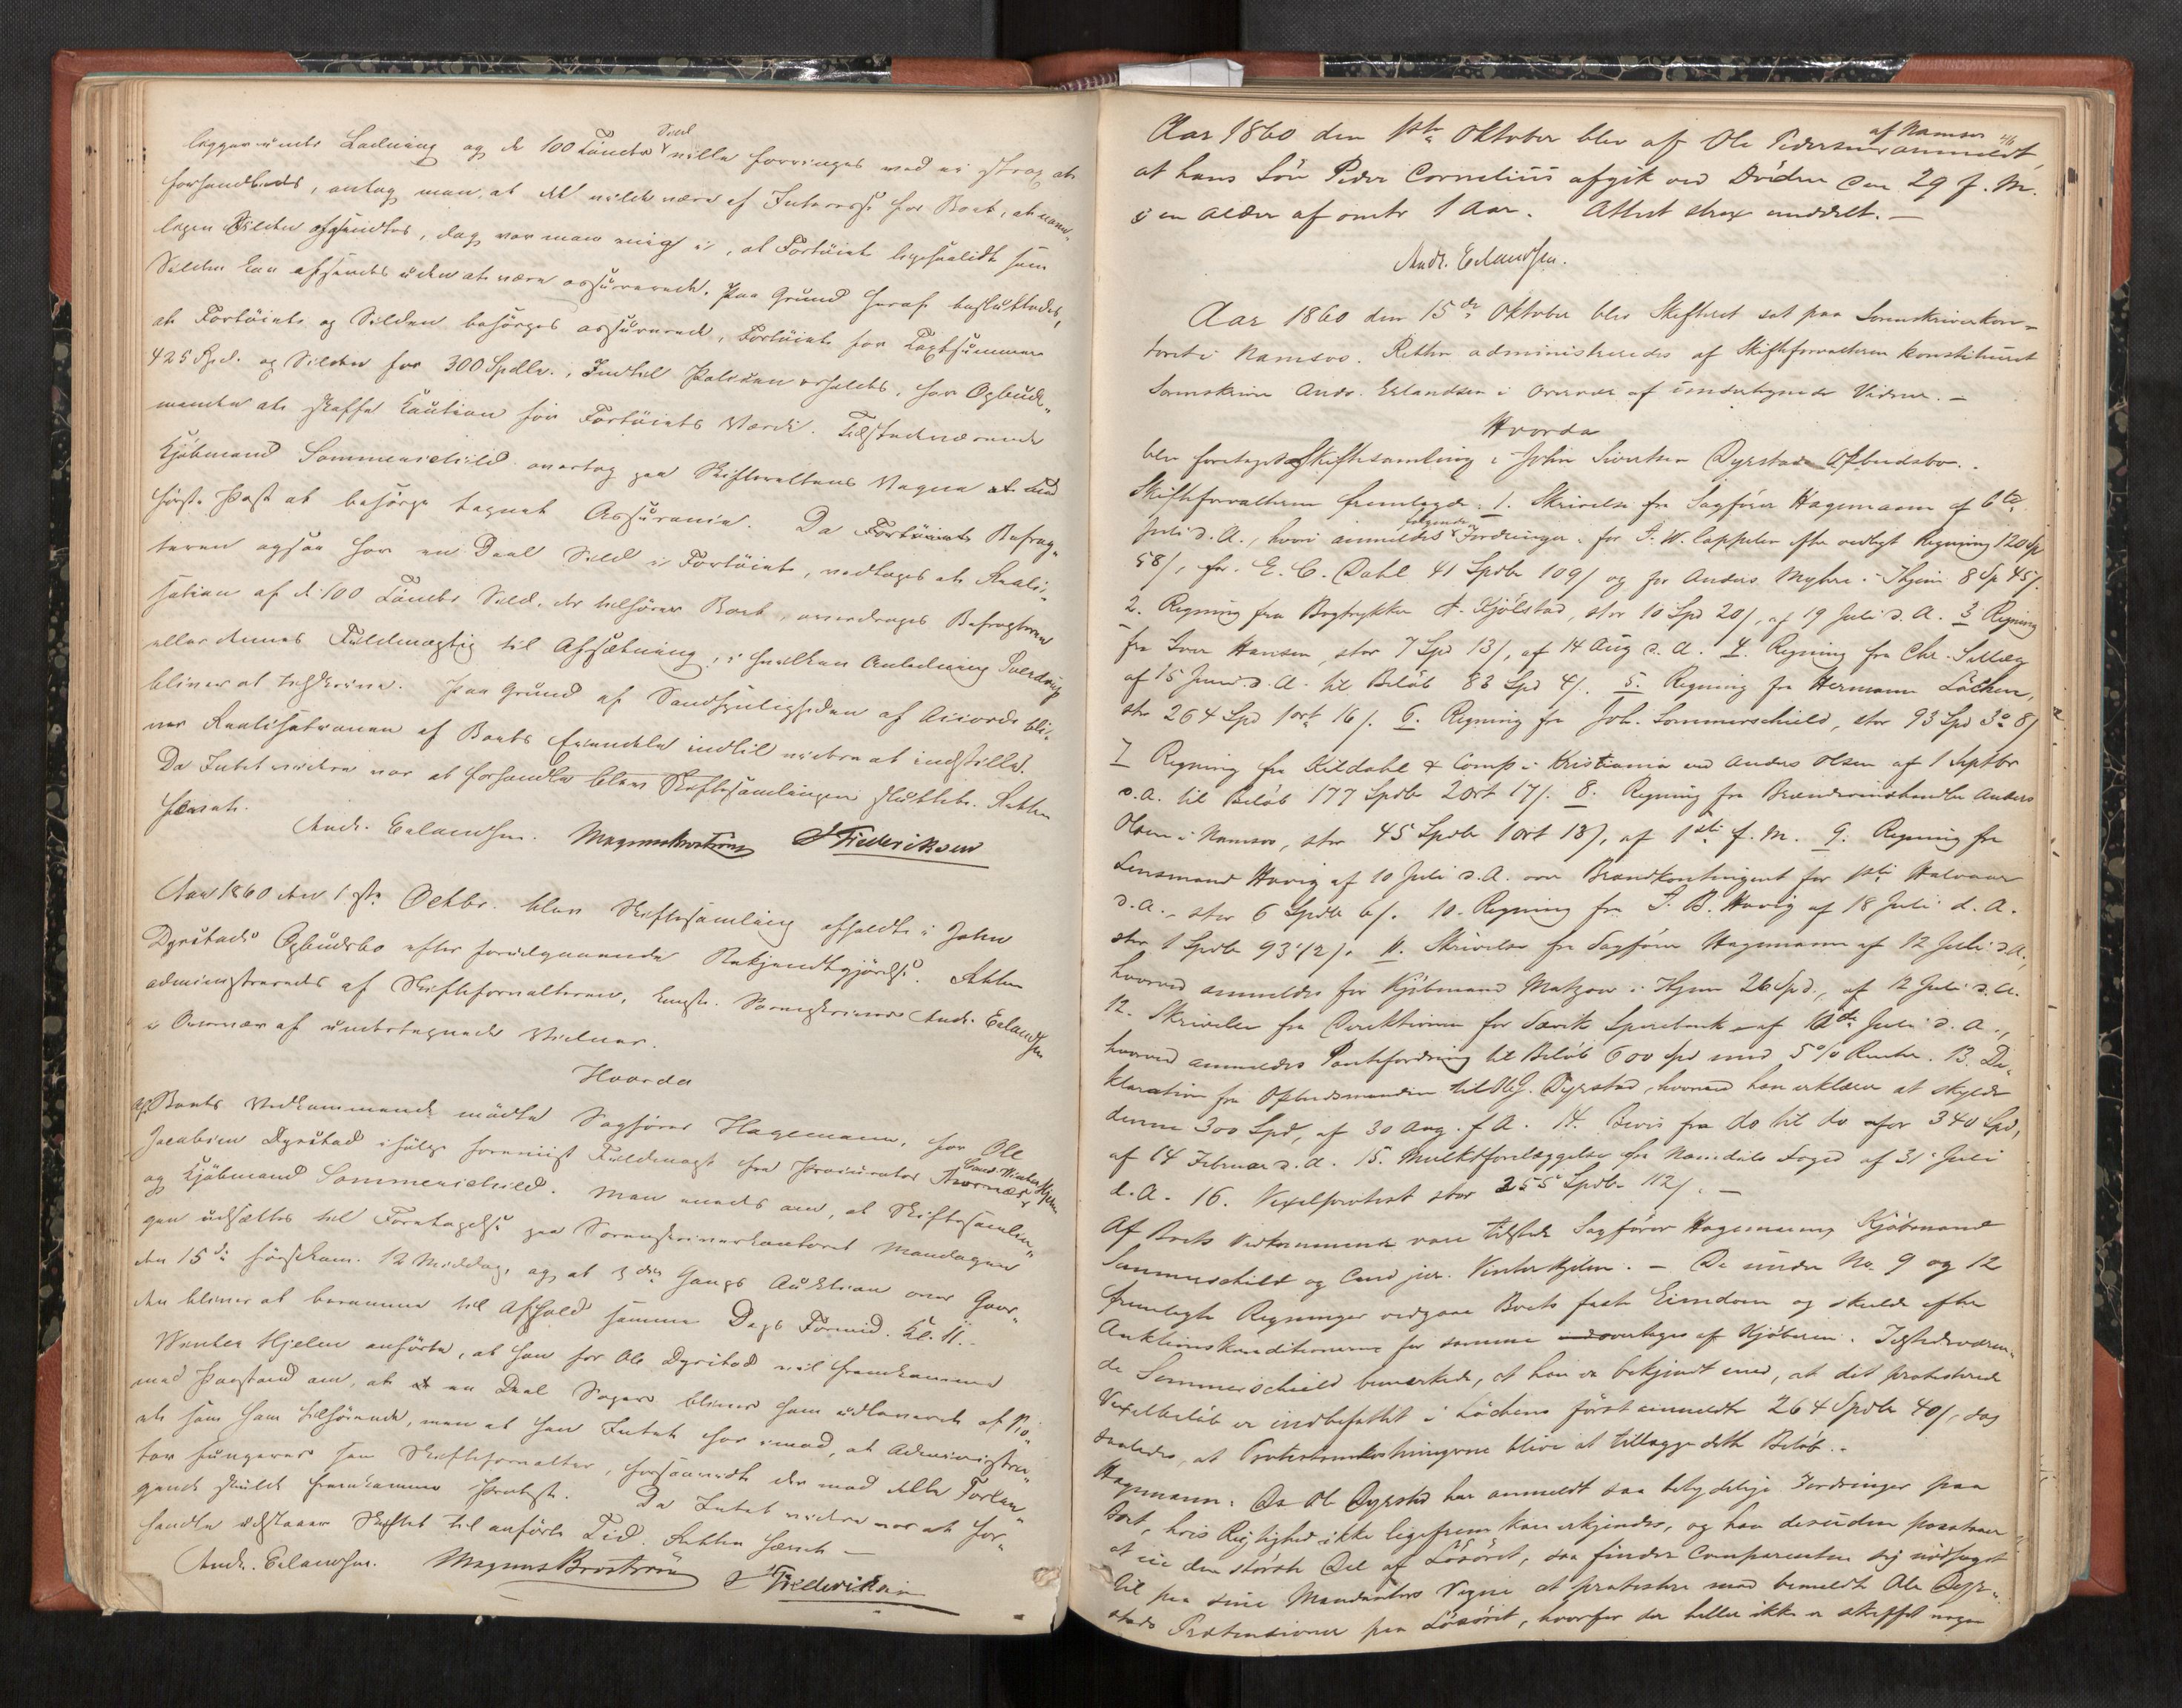 lægger under Ladning og de 100 Tønder Sild ville forringes ved ei strax at
forhandles, antog man, at det vilde være af Interesse for Boet, at navn-
lagen Silden afsendtes, dog var man enig i, at Fortøiet ligesaalidt som
Silden kan afsendes uden at være assureret. Paa Grund heraf besluttedes,
at Fortøiet og Silden besørges assureret, Fortøiet for Taxtsummen
425 Spd. og Silden for 300 Spdlr. Indtil Polisen erholdes, har Opbuds-
manden at skaffe Kaution for Fortøiets Værdi. Tilstedeværende
Kjøbmand Sommerschild overtog paa Skifterettens Vegne at med
første Post at besørge tegnet Assurance. Da Fortøiets Befrag-
teren ogsaa har en Deel Sild i Fortøiet, vedtoges at Reali-
sation af de 100 Tønder Sild, der tilhører Boet, overdrages Befragteren
eller dennes Fuldmægtig til Afsætning, i hvilken Anledning
bliver at tilskrive. Paa Grund af Sandsynligheden af Accord bli-
ver Realisationen af Boets Eiendele indtil videre at indstille.
Da Intet videre var at forhandle blev Skiftesamlingen sluttet. Retten
hævet.
Andr. Erlandsen. Magnus Brostrøm J Frederiksen
Aar 1860 den 1ste Octbr. blev Skiftesamling afholdt i John
Dyrstads Opbudsbo efter forudgaaende Bekjendtgjørelse. Retten
administreredes af Skifteforvalteren, konst. Sorenskriver Andr. Erlandsen
i Overvær af undertegnede Vidner.
Hvorda
af Boets Vedkommende mødte Sagfører Hagemann, for Ole
Jacobsen Dyrstad ifølge foreviist Fuldmagt fra Procurator Thornæs Cand. Winter Hjelm
og Kjøbmand Sommerschild. Man enedes om, at Skiftesamlin-
gen udsættes til Foretagelse paa Sorenskriverkontoret Mandagen
den 15de førstkom. 12 Middag, og at 3die Gangs Auktion over Gaar-
den bliver at beramme til Afhold samme Dags Formid. Kl. 11.
Winter Hjelm anførte, at han for Ole Dyrstad vil fremkomme
med Paastand om, at en Deel Sager bliver ham udleveret af Bo-
et som ham tilhørende, men at han Intet har imod, at Administra-
tor fungerer som Skifteforvalter, forsaavidt der mod dette Forlan-
gende skulde fremkomme Protest. Da Intet videre var at for-
handle udstaaer Skiftet til anførte Tid. Retten hævet –
Andr. Erlandsen. Magnus Broström J Frederiksen
Aar 1860 den 1ste Oktober blev af Ole Pedersen af Namsos anmeldt
at hans Sön Peder Cornelius afgik ved Döden den 29 f. M.
i en Alder af omtr 1 Aar. Attest strax meddelt. –
Andr. Erlandsen.
Aar 1860 den 15de Oktober blev Skifteret sat paa Sorenskriverkon-
toret i Namsos. Retten administreredes af Skifteforvalteren konstitueret
Sorenskriver Andr. Erlandsen i Overvær af undertegnede Vidner. –
Hvorda
blev foretaget Skiftesamling i John Sivertsen Dyrstads Opbudsbo.
Skifteforvalteren fremlagde: 1. Skrivelse fra Sagförer Hagemann af 6te
Juli d. A., hvori anmeldes følgende Fordringer: for F. W. Cappelen efter vedlagt Regning 120 Sp
58/, for E. C. Dahl 41 Spdlr 109/ og for Anders Myhre i Thjem 8 Sp 45/.
2. Regning fra Bogtrykker A. Kjölstad, stor 10 Spd 20/, af 19 Juli d. A. 3 Regning
fra Iver Hansen, stor 7 Spd 13/, af 14 Aug d. A. 4. Regning fra Chr.
af 15 Juni d. A. til Belöb 83 Spd 4/. 5. Regning fra Hermann Löchen,
stor 264 Spd 1 ort 16/. 6. Regning fra Joh. Sommerschield, stor 93 Spd 3o 8/
7 Regning fra Kildahl & Comp i Kristiania ved Anders Olsen af 1 Septbr
d. A. til Belöb 177 Spdlr 2 Ort 17/. 8. Regning fra Brændevinshandler Anders
Olsen i Namsos, stor 45 Spdlr 1 ort 13/, af 1ste f. M. 9. Regning fra
Lensmand Havig af 10 Juli d. A. over Brandkontingent for 1ste Halvaar
d. A., stor 6 Spdlr 6/. 10. Regning fra J. B. Havig af 18 Juli d. A.
stor 1 Spdlr 93 1/2/. 11. Skrivelse fra Sagförer Hagemann af 12 Juli d. A.,
hvorved anmeldes for Kjöbmand Matzow i Thjem 26 Spd., af 12 Juli d. A.
12. Skrivelse fra Direktionen for Sparebank af 10de Juli d. A.,
hvorved anmeldes Pantefordring til Belöb 600 Spd med 5% Renter. 13. De-
klaration fra Opbudsmanden til Ole J. Dyrstad, hvorved han erklærer at skylde
denne 300 Spd, af 30 Aug. f. A. 14. Bevis fra do til do for 340 Spd,
af 14 Februar d. A. 15. Mulktforelæggelse fra Namdals Foged af 31 Juli
d. A. 16. Vexelprotest stor 255 Spdlr 112/. –
Af Boets Vedkommende vare tilstede Sagförer Hagemann, Kjöbmand
Sommerschild og Cand jur. Vinter Hjelm. – De under No. 9 og 12
fremlagte Regninger vedgaae Boets faste Eiendom og skulde efter
Auktionskonditionerne for samme overtages af Kjöberen. Tilstedeværen-
de Sommerschield bemærkede, at han er bekjendt med, at det protesterede
Vexelbelöb er indbefattet i Löchens först anmeldte 264 Spdlr 40/, dog
saaledes, at Protestomkostningerne blive at tillægge dette Belöb.
Hagemann: Da Ole Dyrstad har anmeldt saa betydelige Fordringer paa
Boet, hvis Rigtighed ikke ligefrem kan erkjendes, og han desuden paastaaer
at eie den störste Del af Lösöret, saa finder Comparenten sig nödsaget
til paa sine Mandanters Vegne at protestere mod bemeldte Ole Dyr-
stads Prætensioner paa Lösöret, hvorfor der heller ikke er skeffet nogen